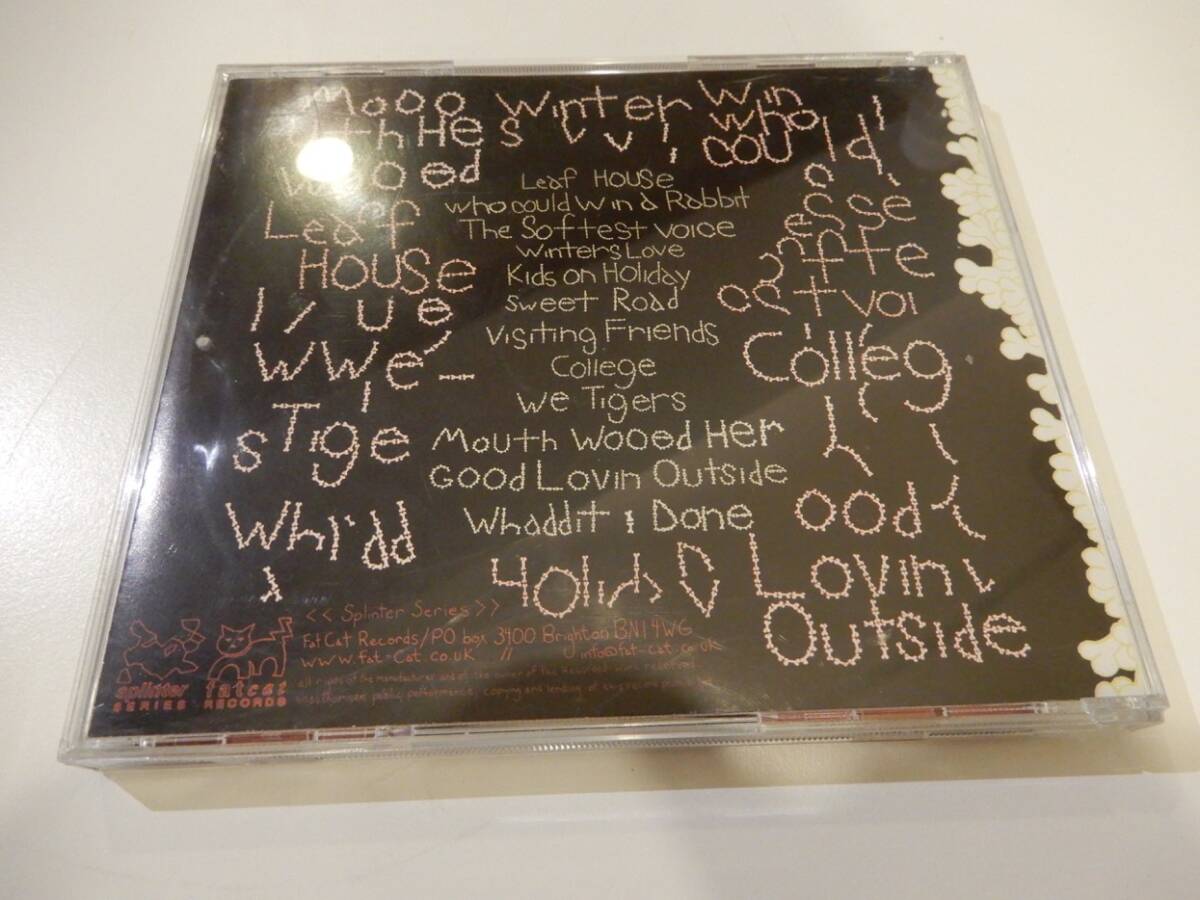 Mooo winter win
thHes who
could
wooed
Leaf House
who could win a Rabbit
The Softest voice
winters Love
Kids on Holiday
Sweet Road
Visiting Friends
College
We Tigers
Mouth Wooed Her
Good Lovin Outside
Whaddit i Done
Leaf
House
WWe-
sTige
Whi'dd
esse
Colleg
ood
Lovin
Outside
<< Splinter Series >>
FatCat Records/PO box 3400 Brighton BN1 4WG
www.fat-cat.co.uk // info@fat-cat.co.uk
all rights of the manufacturer and of the owner of this recorded work reserved
unauthorised public performance, copying and lending of
splinter
SERIES
fatcat
RECORDS